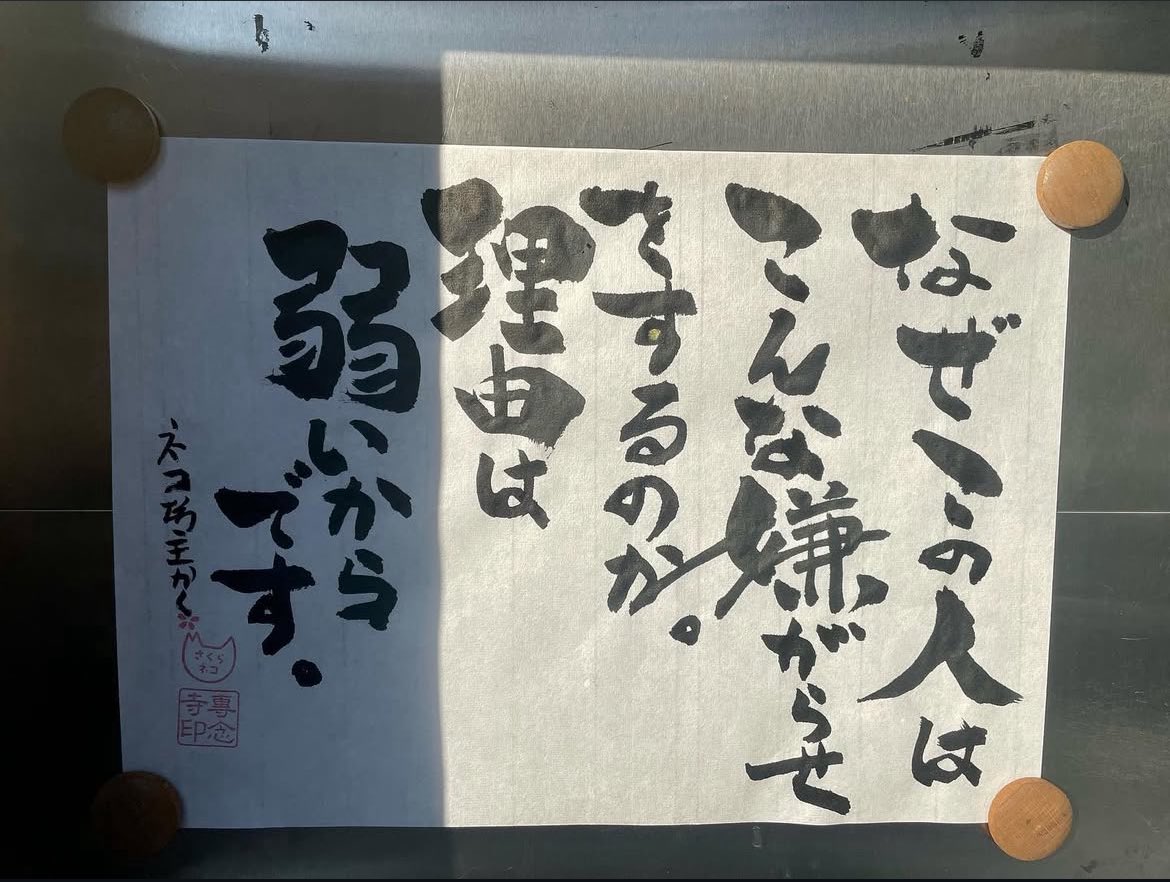 なぜこの人は
こんな嫌がらせ
をするのか。
理由は
弱いから
です。
ネコ坊主かく
さくら
ネコ
専念
寺印